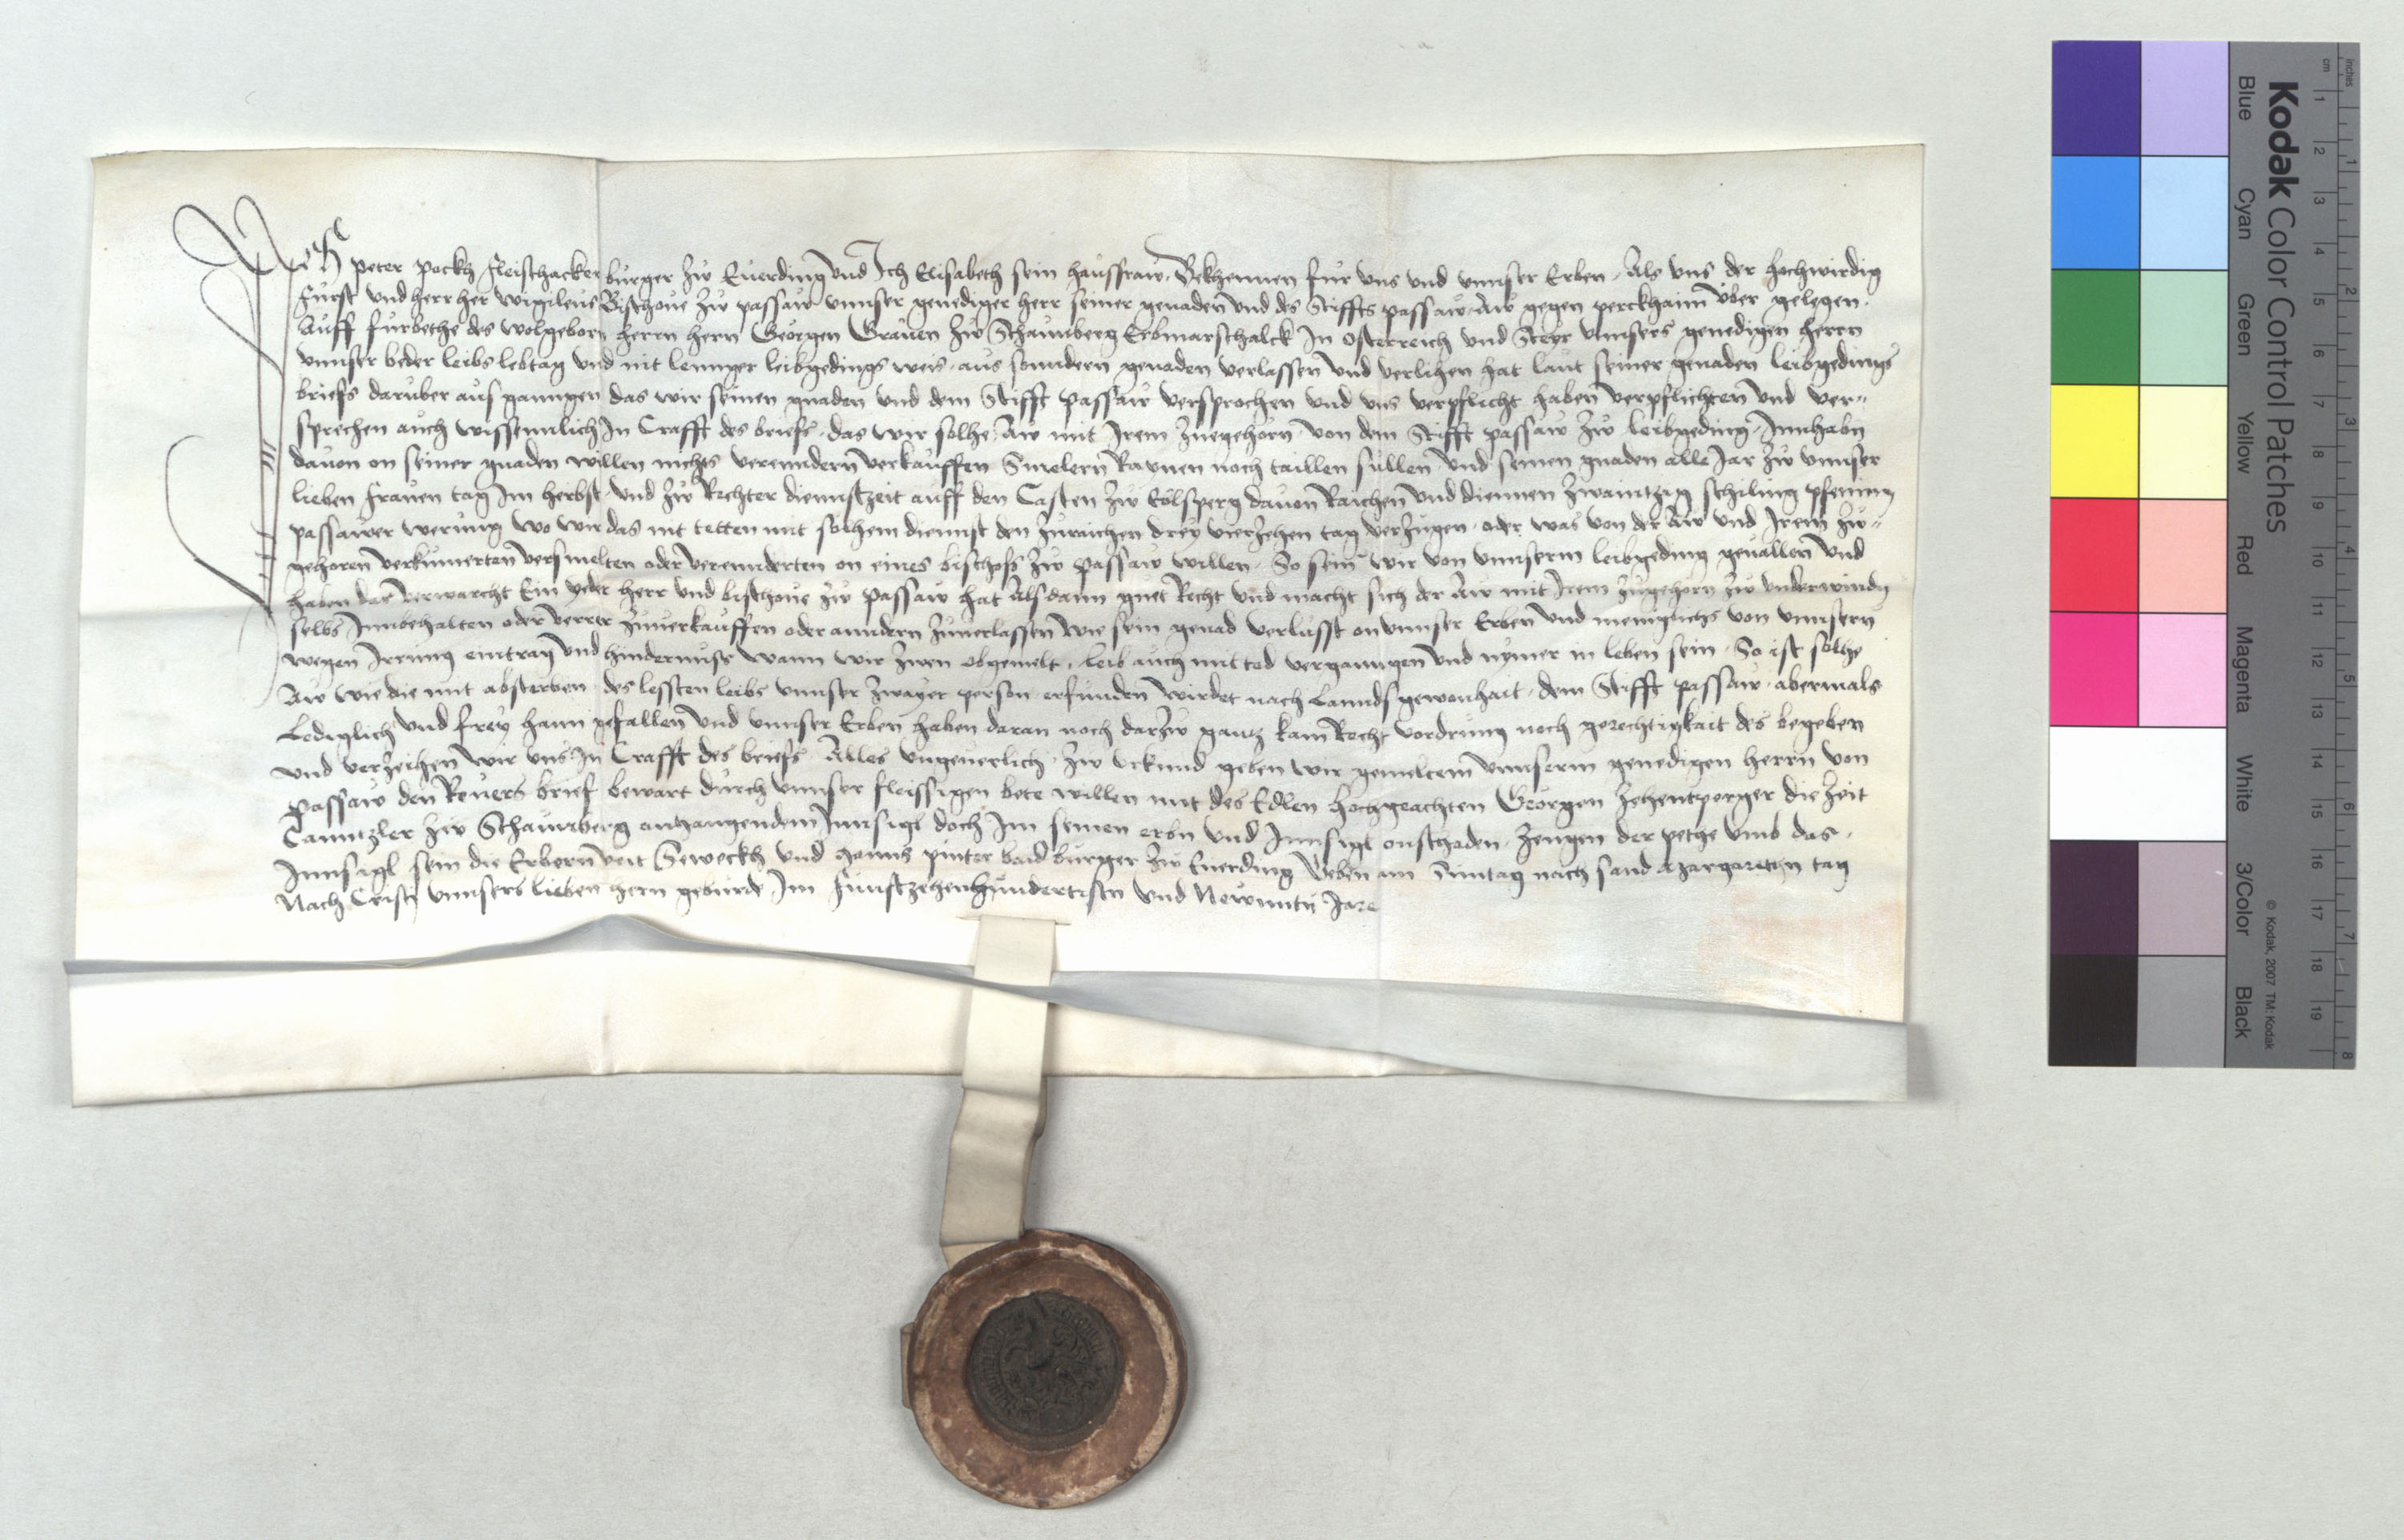 Ich Peter Pockh Fleischacker burger zw Euerding Und Ich Elisabeth sein haussfraw Bekhennen fur vns vnd vnnser Erben Als vns der hochwirdig
Fürst vnd herr her Wigileus Bischoue zw passaw vnnser genediger herr seiner genaden vnd des Stiffts passaw Aw gegen perckhaim vber gelegen
Auff furbethe des wolgeborn herrn hern Georgen Grauen zw Schaunberg Erbmarschalck In Osterreich vnd Steyr vnnsers genedigen herrn
vnnser beder leibs lebtag vnd nit lennger leibgedings weis aus sonndern genaden verlassen vnd verlihen hat laut seiner genaden leibgedings
briefs daruber aus ganngen das wir seinen gnaden vnd dem Stifft passaw versprochen vnd vns verpflicht haben verpflichten vnd ver-
sprechen auch wissennlich In Crafft des briefs das wir solhe Aw mit Irem zuegehorn von dem Stifft passaw zw leibgeding Innhabn
dauon on seiner gnaden willen nichts verenndern verkauffen Smelern Raumen noch taillen sullen vnd seinen gnaden alle Jar zw vnnser
lieben frawen tag Im herbst vnd zw Rechter diennstzeit auff den Casten zw Eölsperg dauon Raichen vnd diennen zwaintzig schiling pfening
passawer werung wo wir das nit tetten mit solhem diennst den zuraichen drey vierzehen tag verzugen oder was von der Aw vnd Irem zw-
gehoren verkumerten versmelten oder verennderten on eines bischofs zw passaw willen So sein wir von vnnserm leibgeding geuallen vnd
haben das verwarcht Ein yeder herr vnd bischoue zw passaw hat Alsdann guet Recht vnd macht sich der Aw mit Irem zugehorn zw vnderwindn
selbs Innbehalten oder verrer zuuerkauffen oder anndern zuuerlassen wie sein genad verlusst on vnnser Erben vnd meniglichs von vnnsern
wegen Irrung eintrag vnd hindernuss wann wir zwen obgemelt leib auch mit tod verganngen vnd nymer in leben sein So ist solhe
Aw wie die mit absterben des lessten leibs vnnser zwayer person erfunden wirdet nach Lannds gewonhait dem Stifft passaw abermals
Lediglich vnd frey haim gefallen vnd vnnser Erben haben daran noch darzw gantz kain Recht vordrung noch gerechtigkait des begeben
vnd verzeihen wir vns In Crafft des briefs Alles vngeuerlich zw vrkund geben wir gemeltem vnnserm genedigen herrn von
Passaw den Reuers brief bewart durch vnnser fleissigen bete willen mit des Edlen hochgeachten Georgen Zehentperger die zeit
Canntzler zw Schaunberg anhangendem Innsigl doch Im seinen erbn vnd Innsigl onschaden Zeugen der pethe vmb das
Innsigl sein die Erbern veit Seweckh vnd Hanns pinter baid burger zw Euerding Geben am Suntag nach sand Margarethen tag
Nach Cristi vnnsers lieben hern geburde Im Funftzehenhundertisten vnd Newnntn Jare
Kodak Color Control Patches
Blue Cyan Green Yellow Red Magenta White 3/Color Black
© Kodak, 2007 TM: Kodak
inches 1 2 3 4 5 6 7 8
cm 1 2 3 4 5 6 7 8 9 10 11 12 13 14 15 16 17 18 19